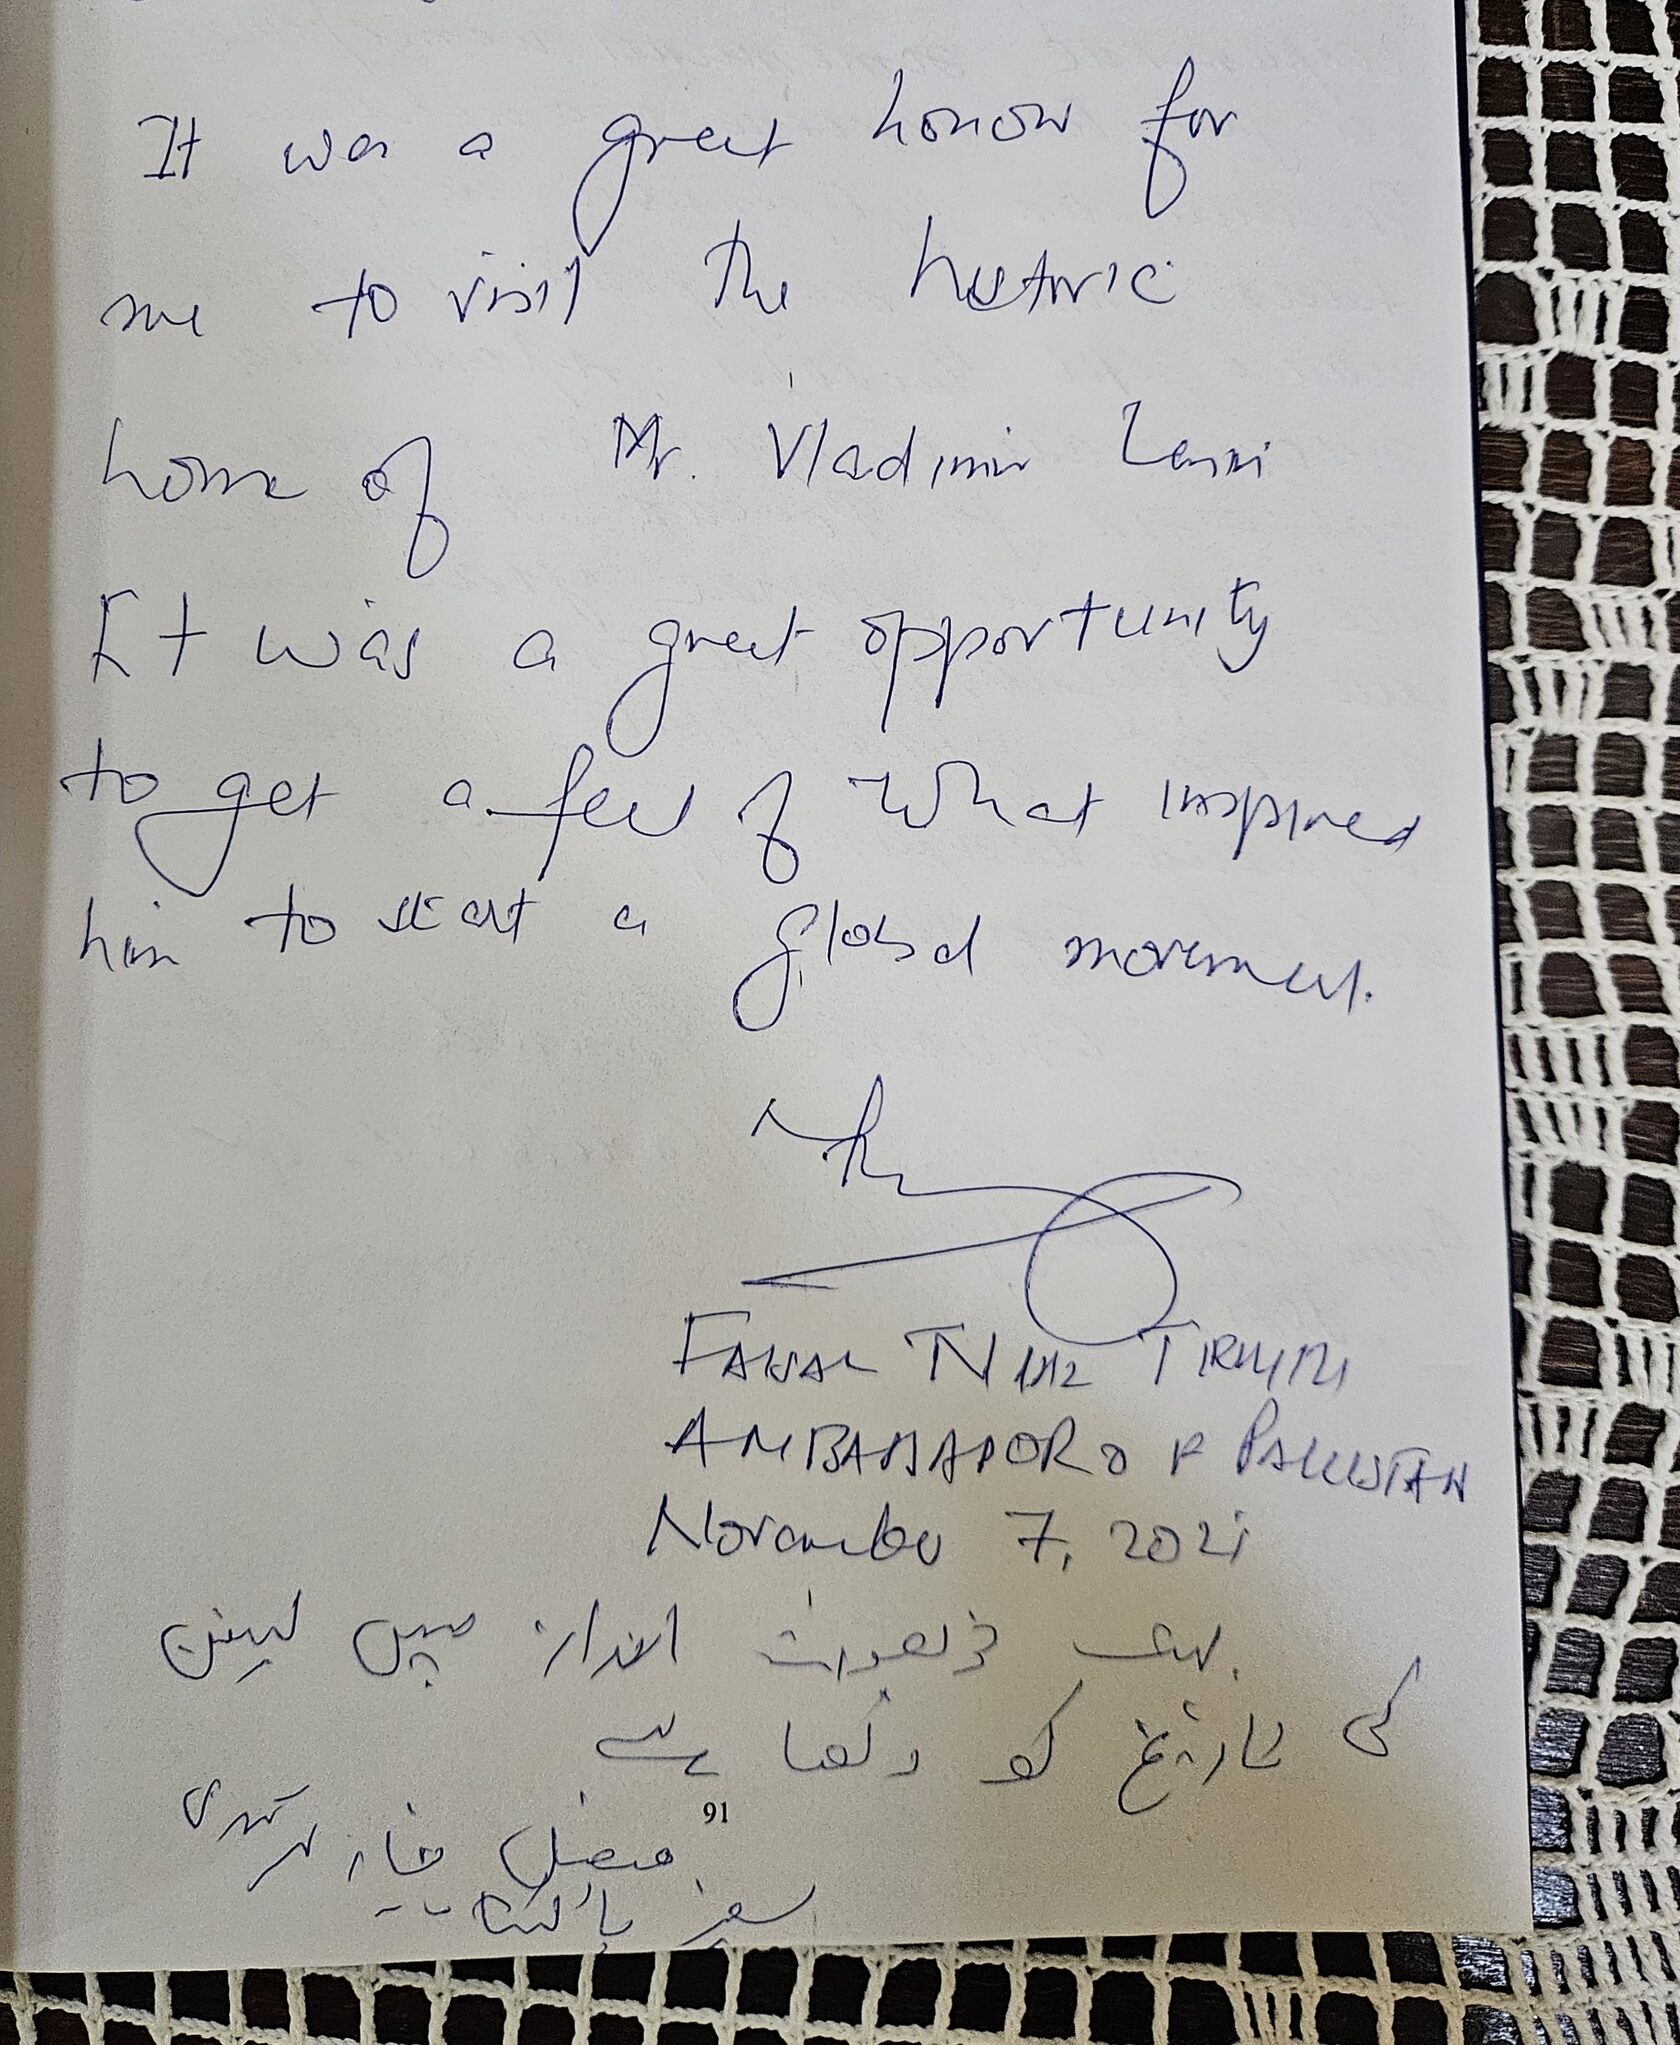 It was a great honour for
me to visit the historic
home of Mr. Vladimir Lenin
It was a great opportunity
to get a feel of what inspired
him to start a global movement.
FAISAL NIAZ TIRMIZI
AMBASSADOR OF PAKISTAN
November 7, 2021
بہت خوبصورت انداز میں لینن
کی تاریخ کو رکھا ہے
91
فیصل نیاز ترمذی
سفیر پاکستان